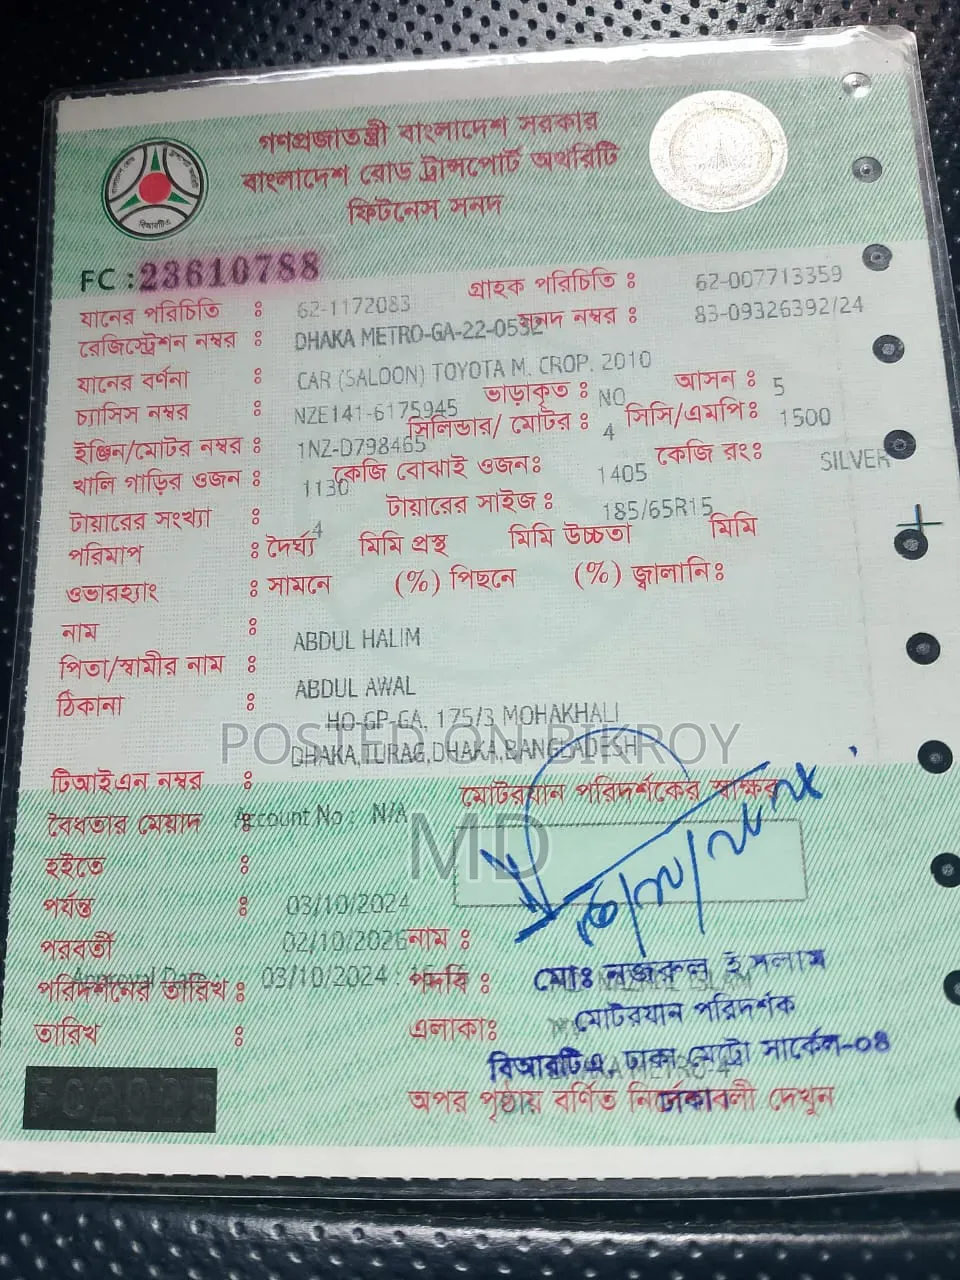 গণপ্রজাতন্ত্রী বাংলাদেশ সরকার
বাংলাদেশ রোড ট্রান্সপোর্ট অথরিটি
ফিটনেস সনদ
বিআরটিএ
FC : 23610788
যানের পরিচিতি : 62-1172083 গ্রাহক পরিচিতি : 62-007713359
রেজিস্ট্রেশন নম্বর : DHAKA METRO-GA-22-0532 সনদ নম্বর : 83-09326392/24
যানের বর্ণনা : CAR (SALOON) TOYOTA M. CROP. 2010
চ্যাসিস নম্বর : NZE141-6175945 ভাড়াকৃত : NO আসন : 5
ইঞ্জিন/মোটর নম্বর : 1NZ-D798465 সিলিন্ডার/ মোটর : 4 সিসি/এমপি: 1500
খালি গাড়ির ওজন : 1130 কেজি বোঝাই ওজন: 1405 কেজি রং: SILVER
টায়ারের সংখ্যা : 4 টায়ারের সাইজ : 185/65R15
পরিমাপ : দৈর্ঘ্য মিমি প্রস্থ মিমি উচ্চতা মিমি
ওভারহ্যাং : সামনে (%) পিছনে (%) জ্বালানি:
নাম : ABDUL HALIM
পিতা/স্বামীর নাম : ABDUL AWAL
ঠিকানা : HO-GP-GA, 175/3 MOHAKHALI
DHAKA,TURAG,DHAKA,BANGLADESH
POSTED ON BIKROY
টিআইএন নম্বর : মোটরযান পরিদর্শকের স্বাক্ষর
বৈধতার মেয়াদ : Account No : N/A
MD
হইতে :
পর্যন্ত : 03/10/2024
পরবর্তী 02/10/2026 নাম : মোঃ নজরুল ইসলাম
পরিদর্শনের তারিখ : 03/10/2024 পদবি : মোটরযান পরিদর্শক
তারিখ : এলাকা: বিআরটিএ, ঢাকা মেট্রো সার্কেল-০৪
FC2025
অপর পৃষ্ঠায় বর্ণিত নির্দেশাবলী দেখুন